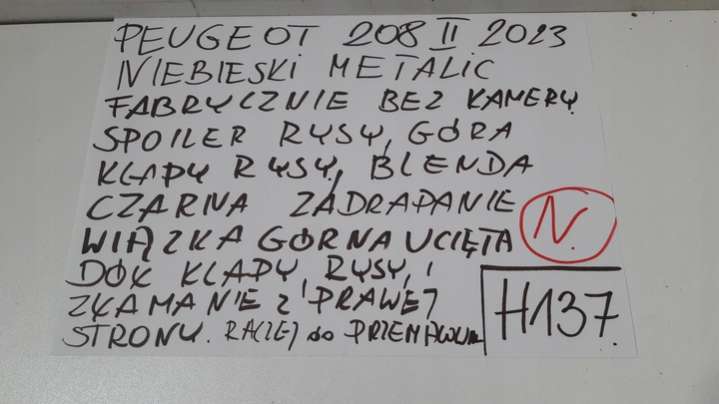 PEUGEOT 208 II 2023
NIEBIESKI METALIC
FABRYCZNIE BEZ KAMERY
SPOILER RYSY, GÓRA
KLAPY RYSY, BLENDA
CZARNA ZADRAPANIE
WIĄZKA GÓRNA UCIĘTA
N.
DÓŁ KLAPY, RYSY, I
ZŁAMANIE Z PRAWEJ
STRONY. RACZEJ do
H137.